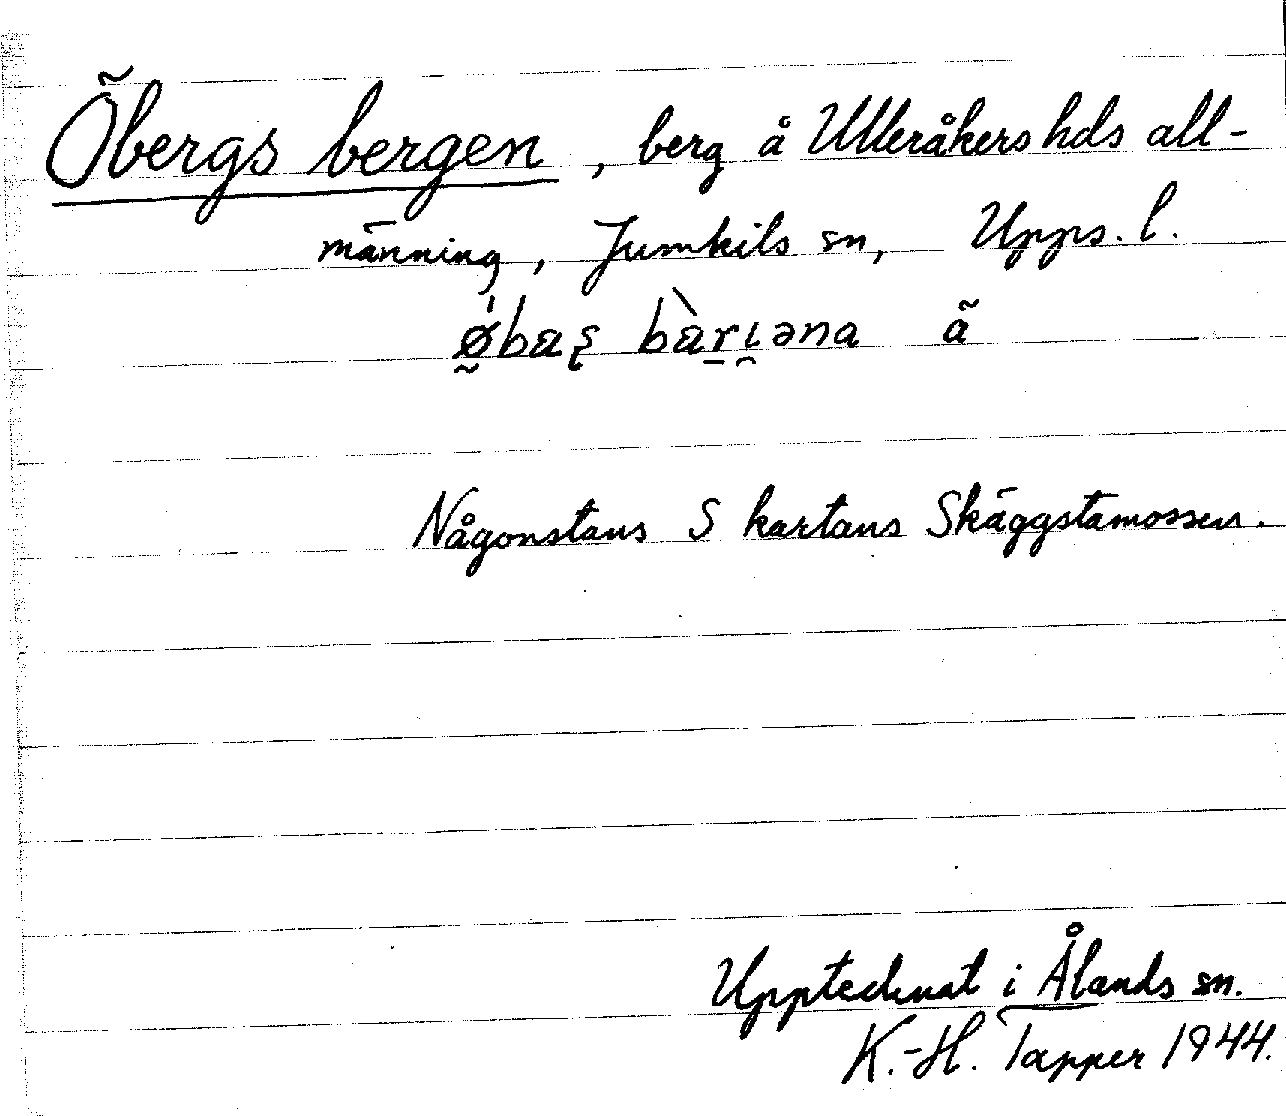 Öbergs bergen, berg å Ulleråkers hds all-
männing, Jumkils sn, Upps. l.
Någonstans S kartans Skäggstamossen.
Upptecknat i Ålands sn.
K.-H. Tapper 1944.